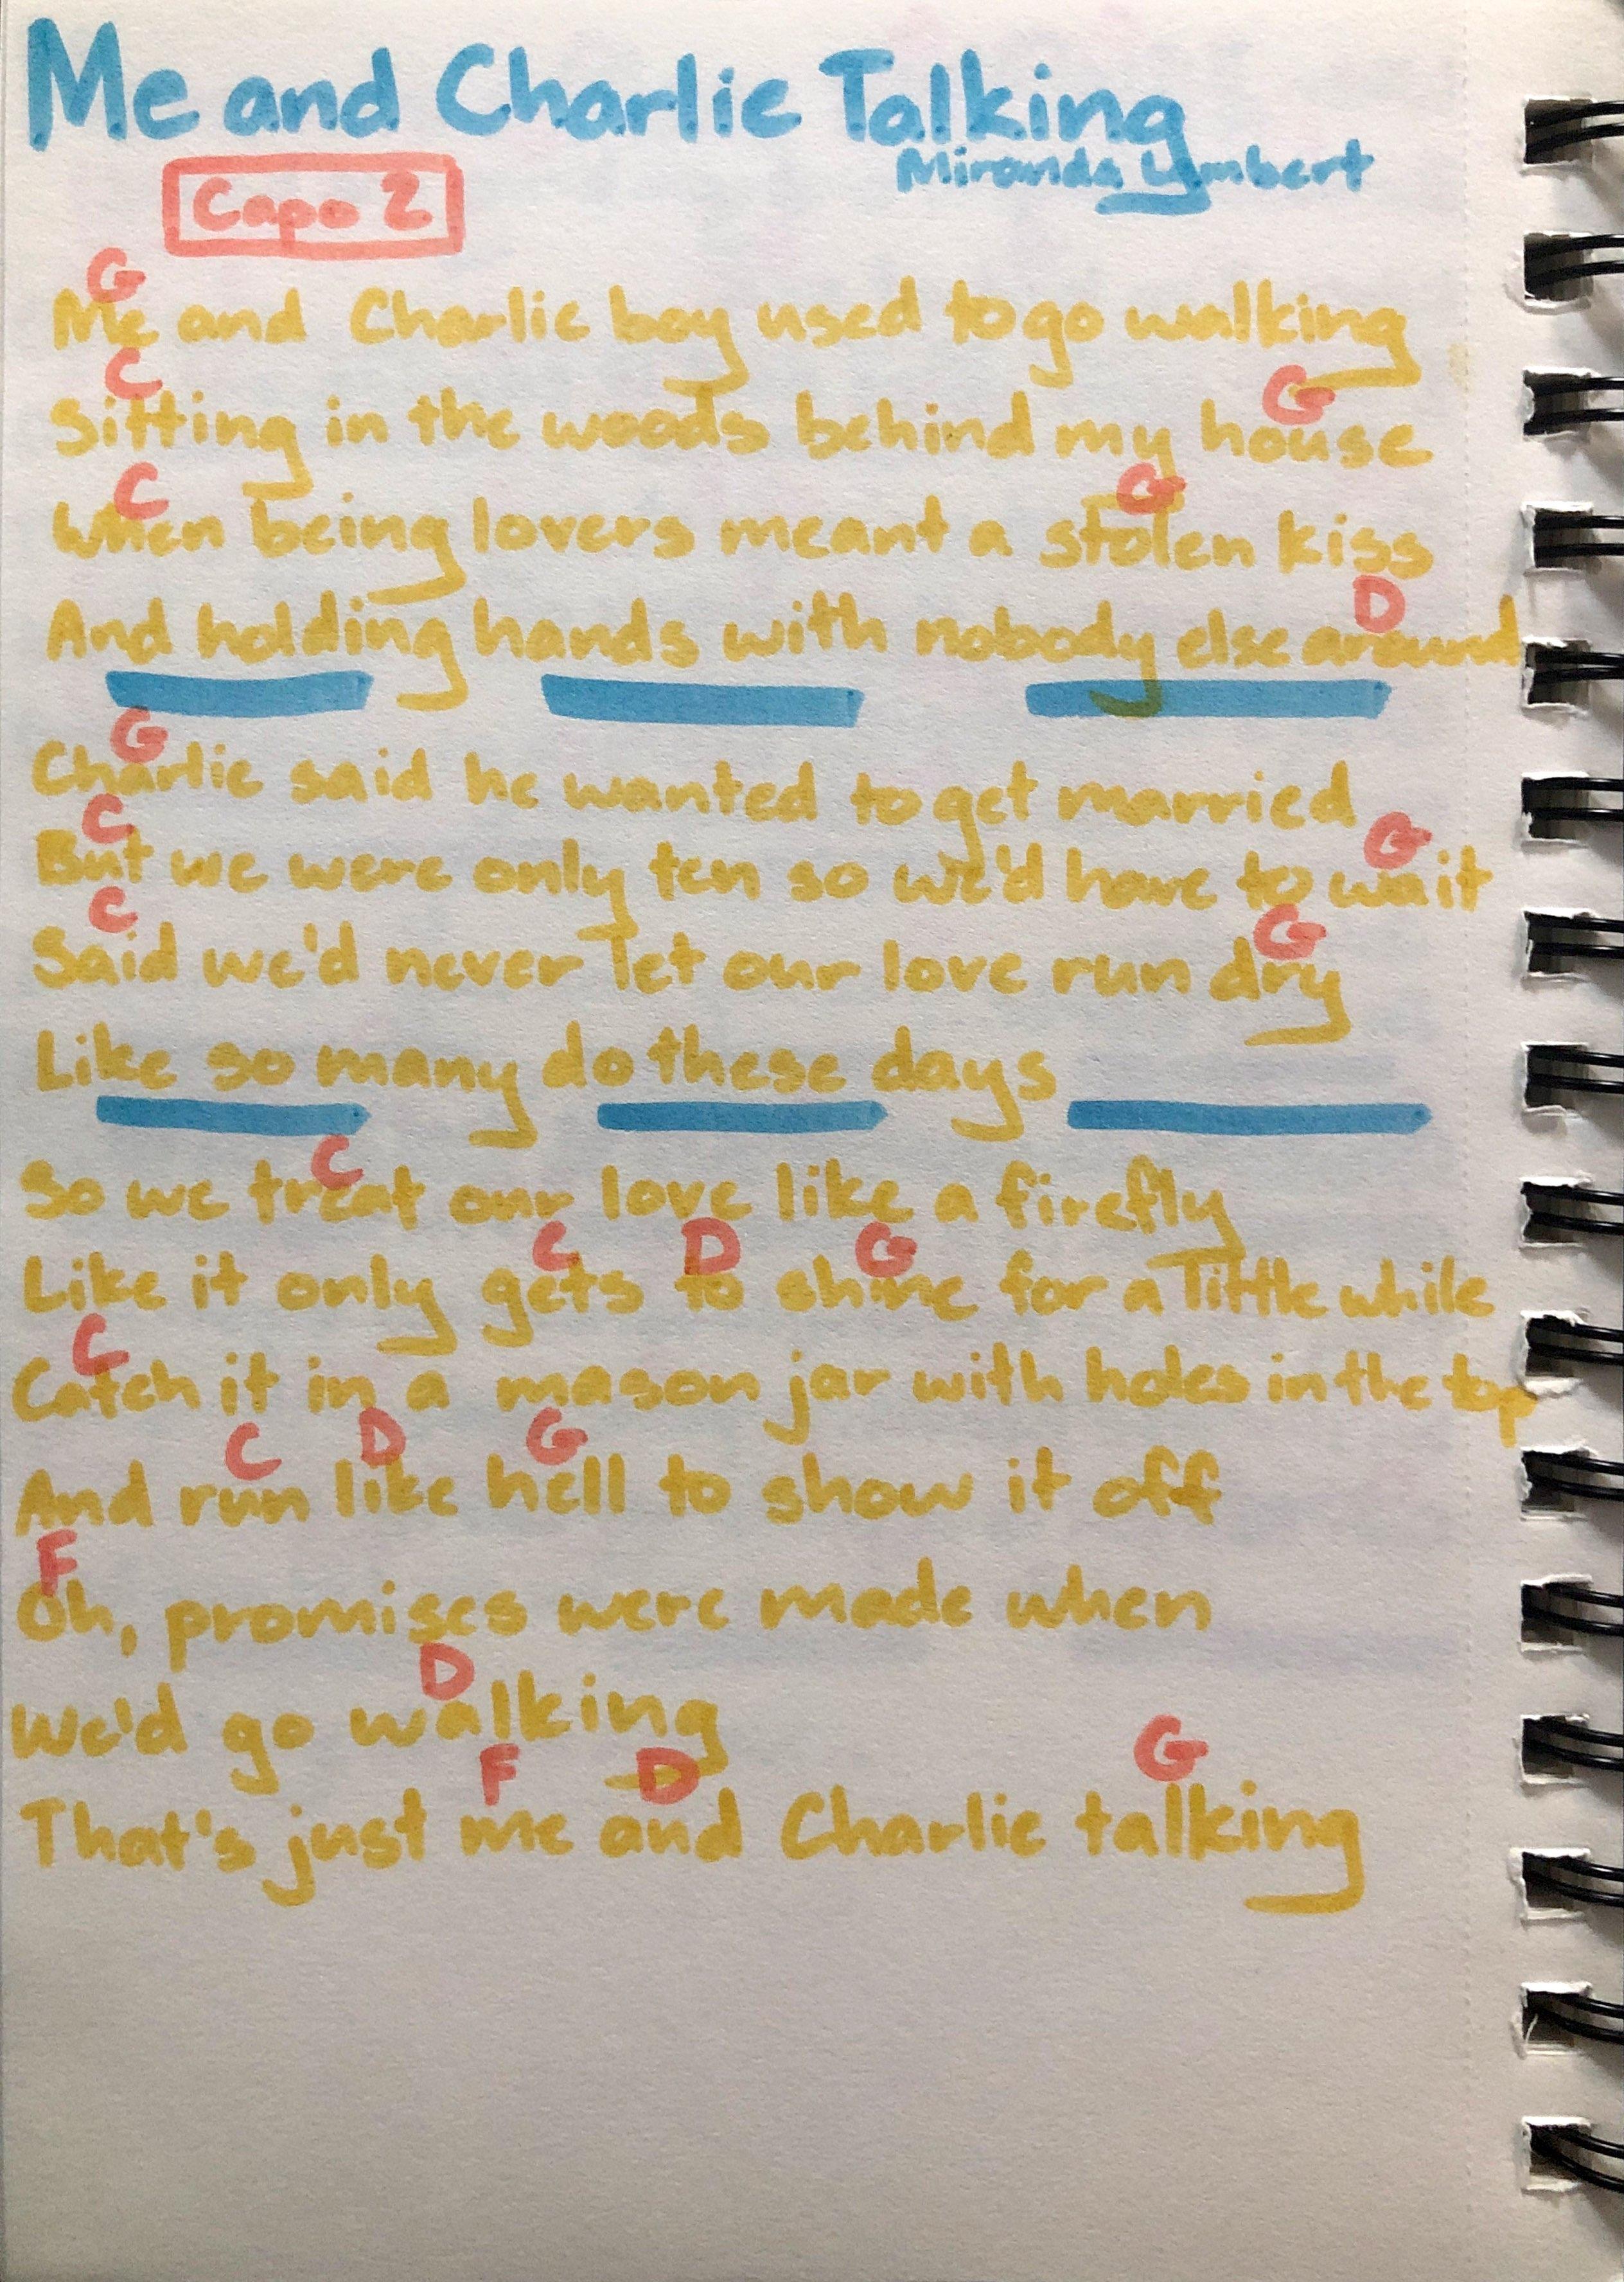 Me and Charlie Talking
Miranda Lambert
Capo 2
G
Me and Charlie boy used to go walking
C G
Sitting in the woods behind my house
C G
When being lovers meant a stolen kiss
D
And holding hands with nobody else around
G
Charlie said he wanted to get married
C G
But we were only ten so we'd have to wait
C G
Said we'd never let our love run dry
Like so many do these days
C
So we treat our love like a firefly
C D G
Like it only gets to shine for a little while
C
Catch it in a mason jar with holes in the top
C D G
And run like hell to show it off
F
Oh, promises were made when
D
We'd go walking
F D G
That's just me and Charlie talking